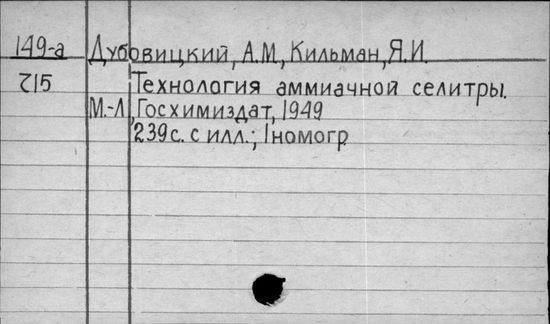 149-а Дубовицкий, А.М., Кильман, Я.И.
715 Технология аммиачной селитры.
М.-Л., Госхимиздат, 1949
239 с. с илл.; 1 номогр.